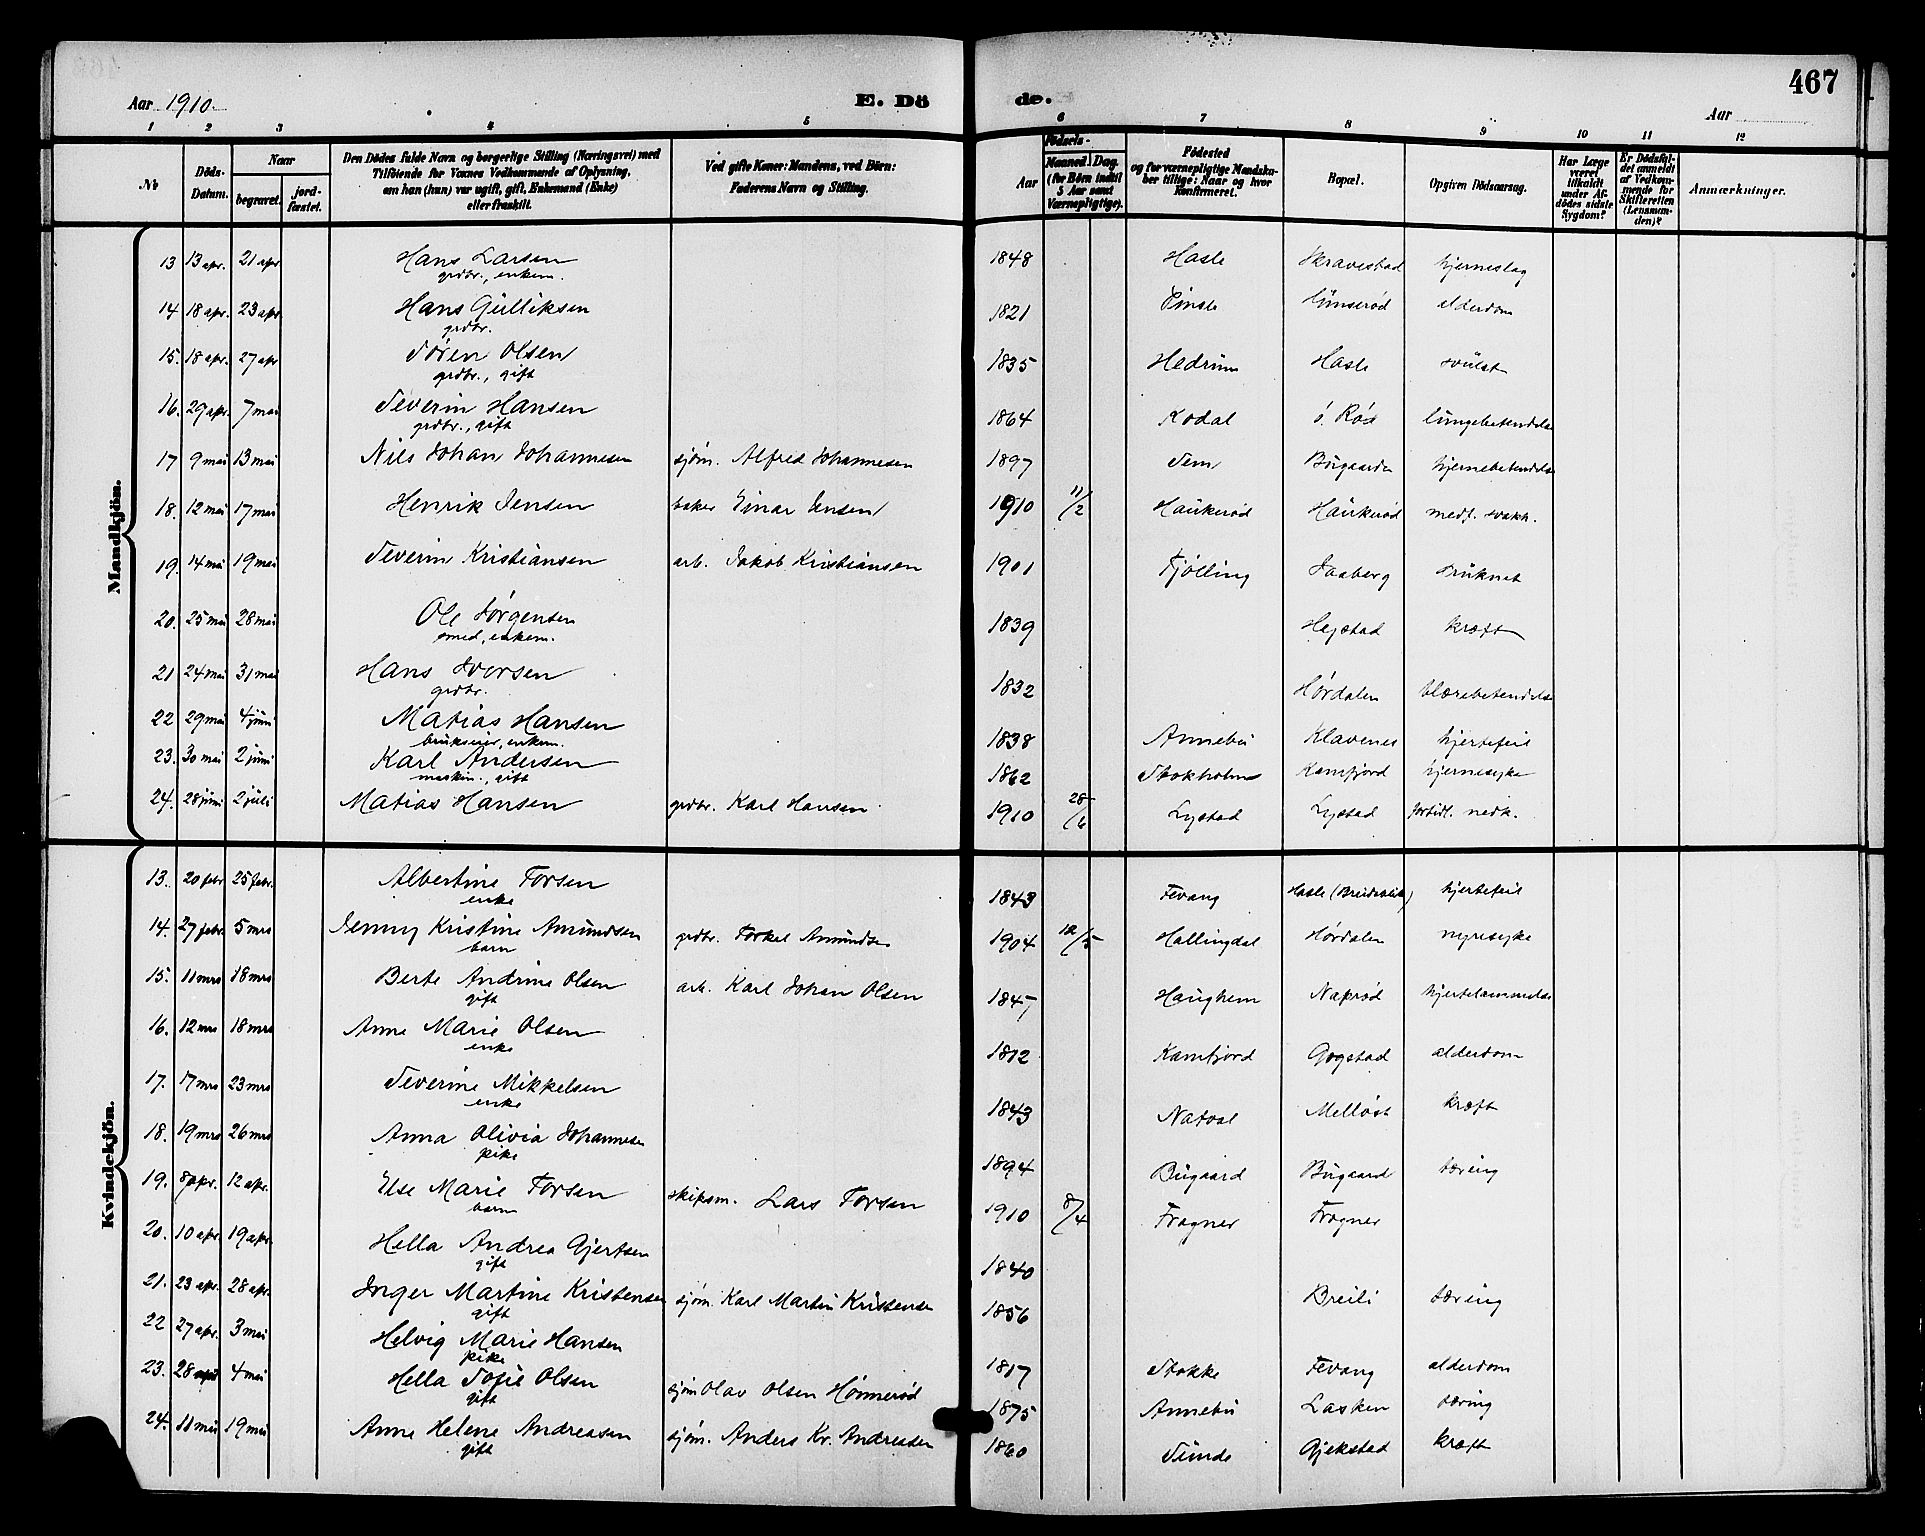 467
Aar 1910. E. Dö de. Aar
1 2 3 4 5 6 7 8 9 10 11 12
No
Döds-Datum.
Naar
begravet.
jord-fæstet.
Den Dödes fulde Navn og borgerlige Stilling (Næringsvei) med
Tilföiende for Voxnes Vedkommende af Oplysning,
om han (hun) var ugift, gift, Enkemand (Enke)
eller fraskilt.
Ved gifte Koner: Mandens, ved Börn:
Faderens Navn og Stilling.
Födsels-
Aar
Maaned. Dag.
(for Börn indtil
5 Aar samt
Værnepligtige).
Födested
og for værnepligtige Mandska-
ber tillige: Naar og hvor
konfirmeret.
Bopæl.
Opgiven Dödsaarsag.
Har Læge
været
tilkaldt
under Af-
dödes sidste
Sygdom?
Er Dödsfal-
det anmeldt
af Vedkom-
mende for
Skifteretten
(Lensman-
den)?
Anmærkninger.
Mandkjön.
13 13 apr. 21 apr Hans Larsen 1848 Hasle Skravestad hjerneslag
grdbr., enkem.
14 18 apr. 23 apr. Hans Gulliksen 1821 alderdom
grdbr.
15. 18 apr. 27 apr Sören Olsen 1835 Hedrum Hasle svulst
grdbr., gift
16. 29 apr. 7 mai Severin Hansen 1864 Kodal ö. Röd lungebetendelse
grdbr., gift
17 9 mai 13 mai Nils Johan Johannesen sjöm. Alfred Johannesen 1897 Sem Bugaarden hjernebetendelse
18. 12 mai 17 mai Henrik Jensen baker Einar Jensen 1910 11/2 Haukeröd Haukeröd medf. svakh.
19. 14 mai 19 mai Severin Kristiansen arb. Jakob Kristiansen 1901 Tjölling Jaaberg druknet
20. 25 mai 28 mai Ole Jörgensen 1839 Hegstad kræft
smed, enkem.
21 24 mai 31 mai Hans Iversen 1832 Hördalen blærebetendelse
grdbr.
22 29 mai 4 juni Matias Hansen 1838 Annebu Klavenes hjertefeil
brukseier, enkem.
23. 30 mai 2 juni Karl Andersen 1862 Stokholm Kamfjord hjernesyke
maskin., gift
24. 28 juni 2 juli Matias Hansen grdbr. Karl Hansen 1910 28/6 Lystad Lystad fortidl. nedk.
Kvindekjön.
13. 20 febr 25 febr. Albertine Torsen 1843 Fevang Hasle (Breidablik) hjertefeil
enke
14. 27 febr. 5 mrs Jenny Kristine Amundsen grdbr. Torkel Amundsen 1904 12/5 Hallingdal Hördalen nyresyke
barn
15. 11 mrs 18 mrs Berte Andrine Olsen arb. Karl Johan Olsen 1847 Haughem Napröd hjertelammelse
gift
16. 12 mrs 18 mrs Anne Marie Olsen 1812 Kamfjord Gogstad alderdom
enke
17. 17 mrs 23 mrs Severine Mikkelsen 1843 Natvol Mellöst kræft
enke
18. 19 mrs 26 mrs Anna Olivia Johannesen 1894 Bugaard Bugaard tæring
pike
19. 8 apr. 12 apr. Else Marie Torsen skipsm. Lars Torsen 1910 8/4 Fragner Fragner
barn
20. 10 apr. 19 apr. Hella Andrea Gjertsen 1840
gift
21. 23 apr. 28 apr. Inger Martine Kristensen sjöm. Karl Martin Kristensen 1856 Breili tæring
gift
22 27 apr. 3 mai Helvig Marie Hansen 1817 Stokke Fevang alderdom
pike
23. 28 april 4 mai Hella Sofie Olsen sjöm Olav Olsen Hönneröd 1875 Annebu Lasken tæring
gift
24. 11 mai 19 mai Anne Helene Andreasen sjöm. Anders Kr. Andreasen 1860 Sunde Gjekstad kræft
gift